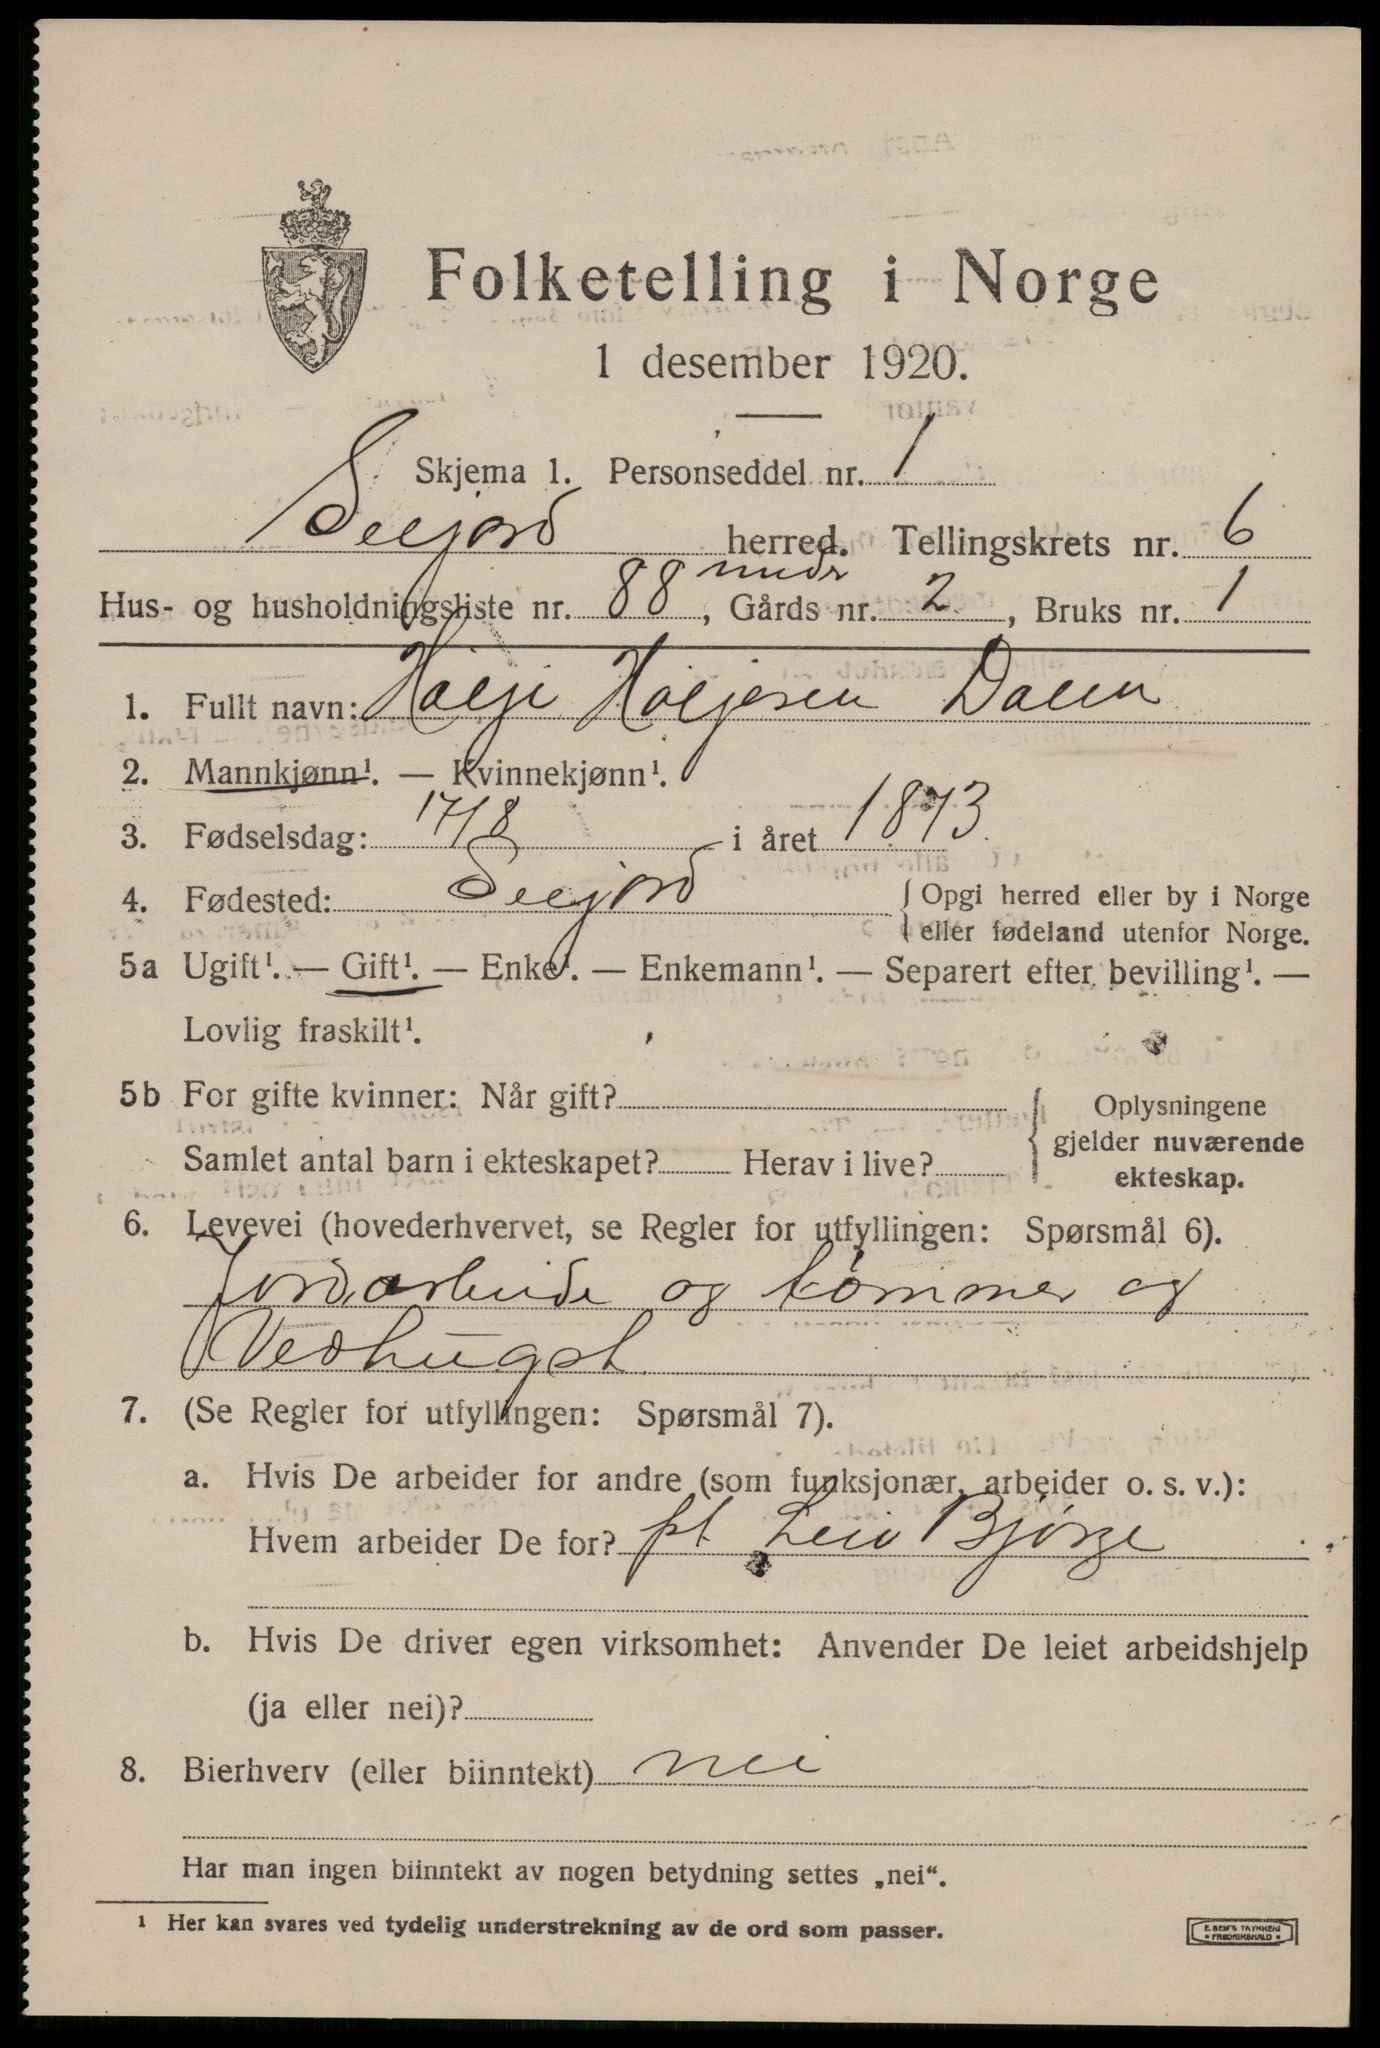 Folketelling i Norge
1 desember 1920.
Skjema 1. Personseddel nr. 1
Seljord herred. Tellingskrets nr. 6
Hus- og husholdningsliste nr. 88, Gårds nr. under 2, Bruks nr. 1
1. Fullt navn: Hølje Høljesen Dalen
2. Mannkjønn¹. — Kvinnekjønn¹.
3. Fødselsdag: 17/8 i året 1873.
4. Fødested: Seljord { Opgi herred eller by i Norge
eller fødeland utenfor Norge.
5a Ugift¹. — Gift¹. — Enke¹. — Enkemann¹. — Separert efter bevilling¹. —
Lovlig fraskilt¹.
5b For gifte kvinner: Når gift? { Oplysningene
gjelder nuværende
Samlet antal barn i ekteskapet? Herav i live?
ekteskap.
6. Levevei (hovederhvervet, se Regler for utfyllingen: Spørsmål 6).
Jordarbeide og tømmer og
Vedhugst.
7. (Se Regler for utfyllingen: Spørsmål 7).
a. Hvis De arbeider for andre (som funksjonær, arbeider o. s. v.):
Hvem arbeider De for? pt Leiv Bjørge
b. Hvis De driver egen virksomhet: Anvender De leiet arbeidshjelp
(ja eller nei)?
8. Bierhverv (eller biinntekt) nei
Har man ingen biinntekt av nogen betydning settes „nei“.
¹ Her kan svares ved tydelig understrekning av de ord som passer.
E. SEM'S TRYKKERI
• FREDRIKSHALD •